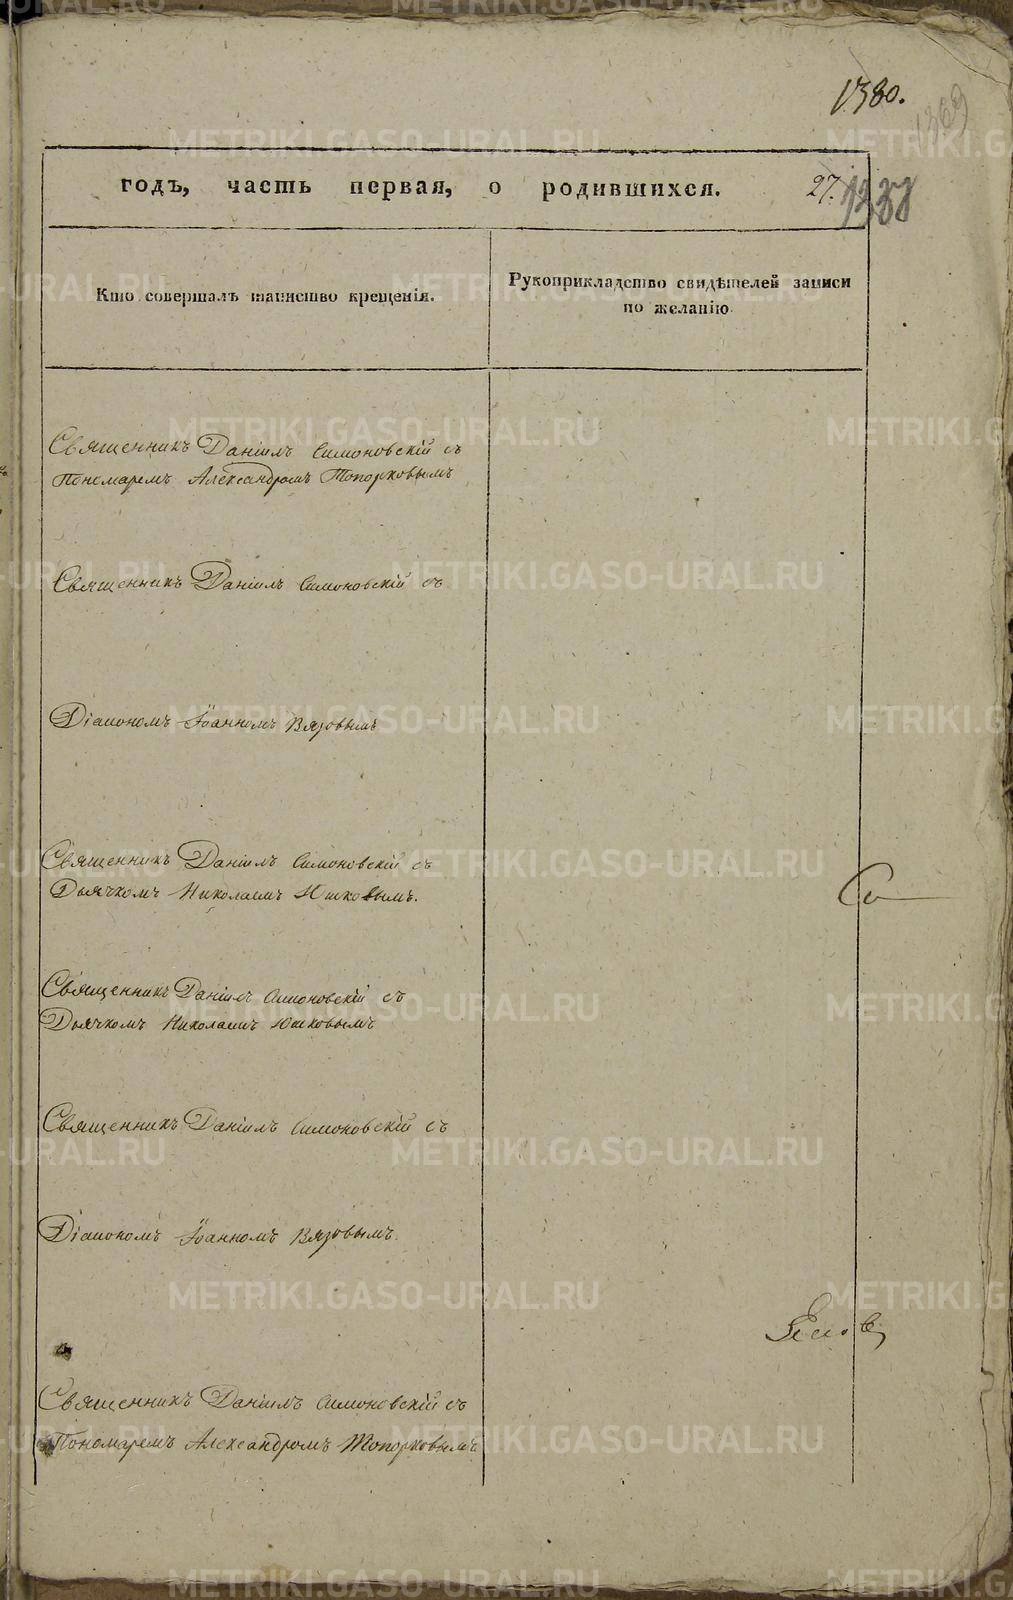 1380.
1369
годъ, часть первая, о родившихся.
27.
Кто совершалъ таинство крещенія.
Рукоприкладство свидѣтелей записи
по желанію.
Священникъ Даніилъ Симоновскій съ
Пономаремъ Александромъ Топорковымъ
Священникъ Даніилъ Симоновскій съ
Діакономъ Іоанномъ Вязовымъ
Священникъ Даніилъ Симоновскій съ
Дьячкомъ Николаемъ Юшковымъ.
Священникъ Даніилъ Симоновскій съ
Дьячкомъ Николаемъ Юшковымъ
Священникъ Даніилъ Симоновскій съ
Діакономъ Іоанномъ Вязовымъ.
Священникъ Даніилъ Симоновскій съ
Пономаремъ Александромъ Топорковымъ
METRIKI.GASO-URAL.RU